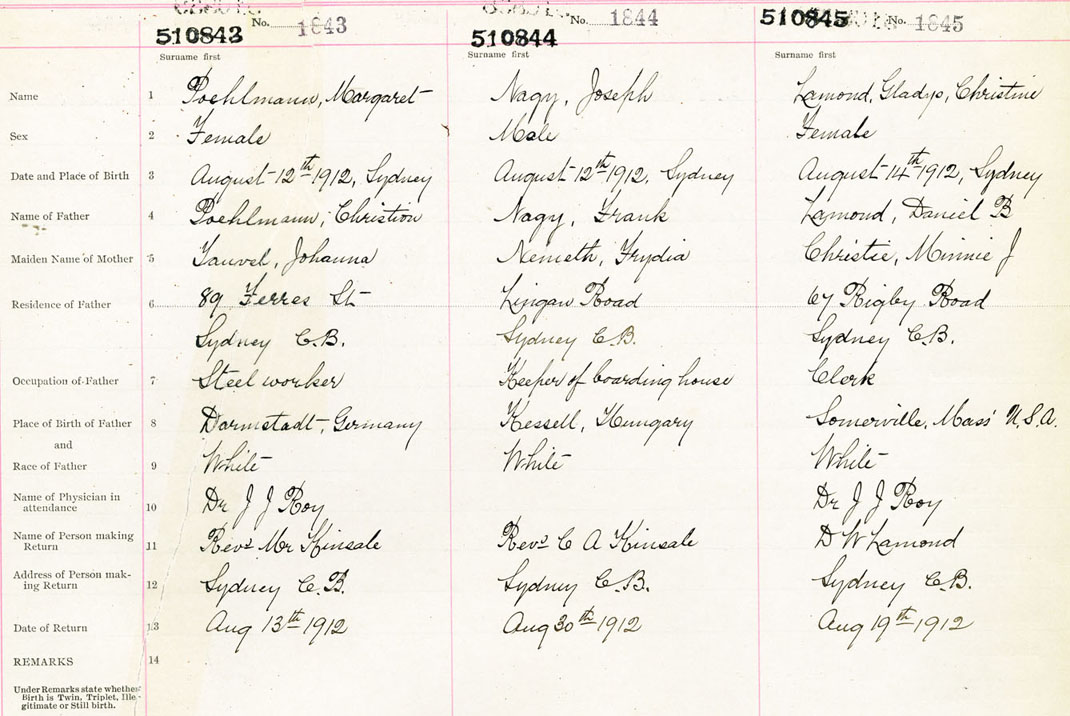 No. 1843 No. 1844 No. 1845
510843 510844 510845
Surname first Surname first Surname first
Name 1 Poehlmann, Margaret Nagy, Joseph Lamond, Gladys, Christine
Sex 2 Female Male Female
Date and Place of Birth 3 August 12th 1912, Sydney August 12th 1912, Sydney August 14th 1912, Sydney
Name of Father 4 Poehlmann, Christian Nagy, Frank Lamond, Daniel B
Maiden Name of Mother 5 Johanna Nemeth, Frydia Christie, Minnie J
Residence of Father 6 89 Ferres St Lingan Road 67 Rigby Road
Sydney C.B. Sydney C.B. Sydney C.B.
Occupation of Father 7 Steel worker Keeper of boarding house Clerk
Place of Birth of Father 8 Darmstadt, Germany Kessell, Hungary Somerville, Mass' U.S.A.
and
Race of Father 9 White White White
Name of Physician in
attendance 10 Dr J J Roy Dr J J Roy
Name of Person making
Return 11 Revd Mr Kinsale Revd C A Kinsale D W Lamond
Address of Person mak-
ing Return 12 Sydney C.B. Sydney C.B. Sydney C.B.
Date of Return 13 Aug 13th 1912 Aug 30th 1912 Aug 19th 1912
REMARKS 14
Under Remarks state whether
Birth is Twin, Triplet, Ille-
gitimate or Still birth.